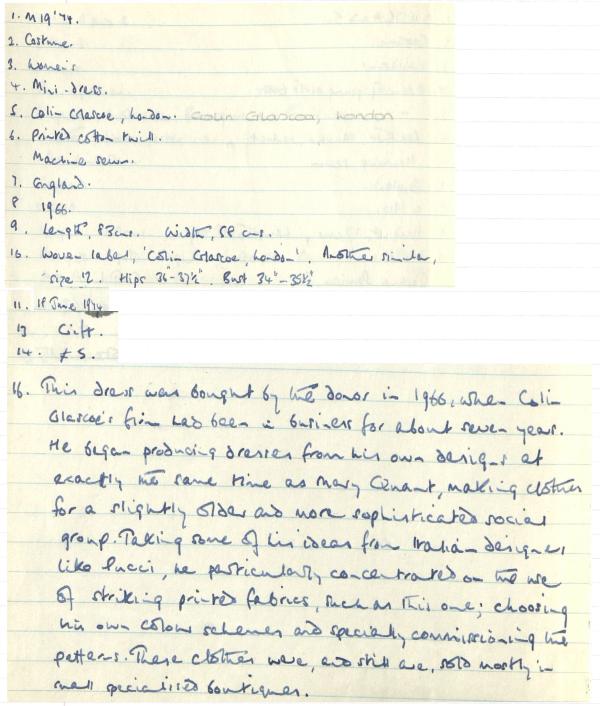 1. M19'74.
2. Costume.
3. Women's
4. Mini-dress.
5. Colin Glascoe, London. Colin Glascoe, London
6. Printed cotton twill.
Machine sewn.
7. England.
8 1966.
9. Length, 83cms. Width, 58 cms.
10. Woven label, 'Colin Glascoe, London'. Another similar,
size 12. Hips 36"-37½". Bust 34"-35½"
11. 18 June 1974
13 Gift.
14. £5.
16. This dress was bought by the donor in 1966, when Colin
Glascoe's firm had been in business for about seven years.
He began producing dresses from his own designs at
exactly the same time as Mary Quant, making clothes
for a slightly older and more sophisticated social
group. Taking some of his ideas from Italian designers
like Pucci, he particularly concentrated on the use
of striking printed fabrics, such as this one; choosing
his own colour schemes and specially commissioning the
patterns. These clothes were, and still are, sold mostly in
small specialised boutiques.